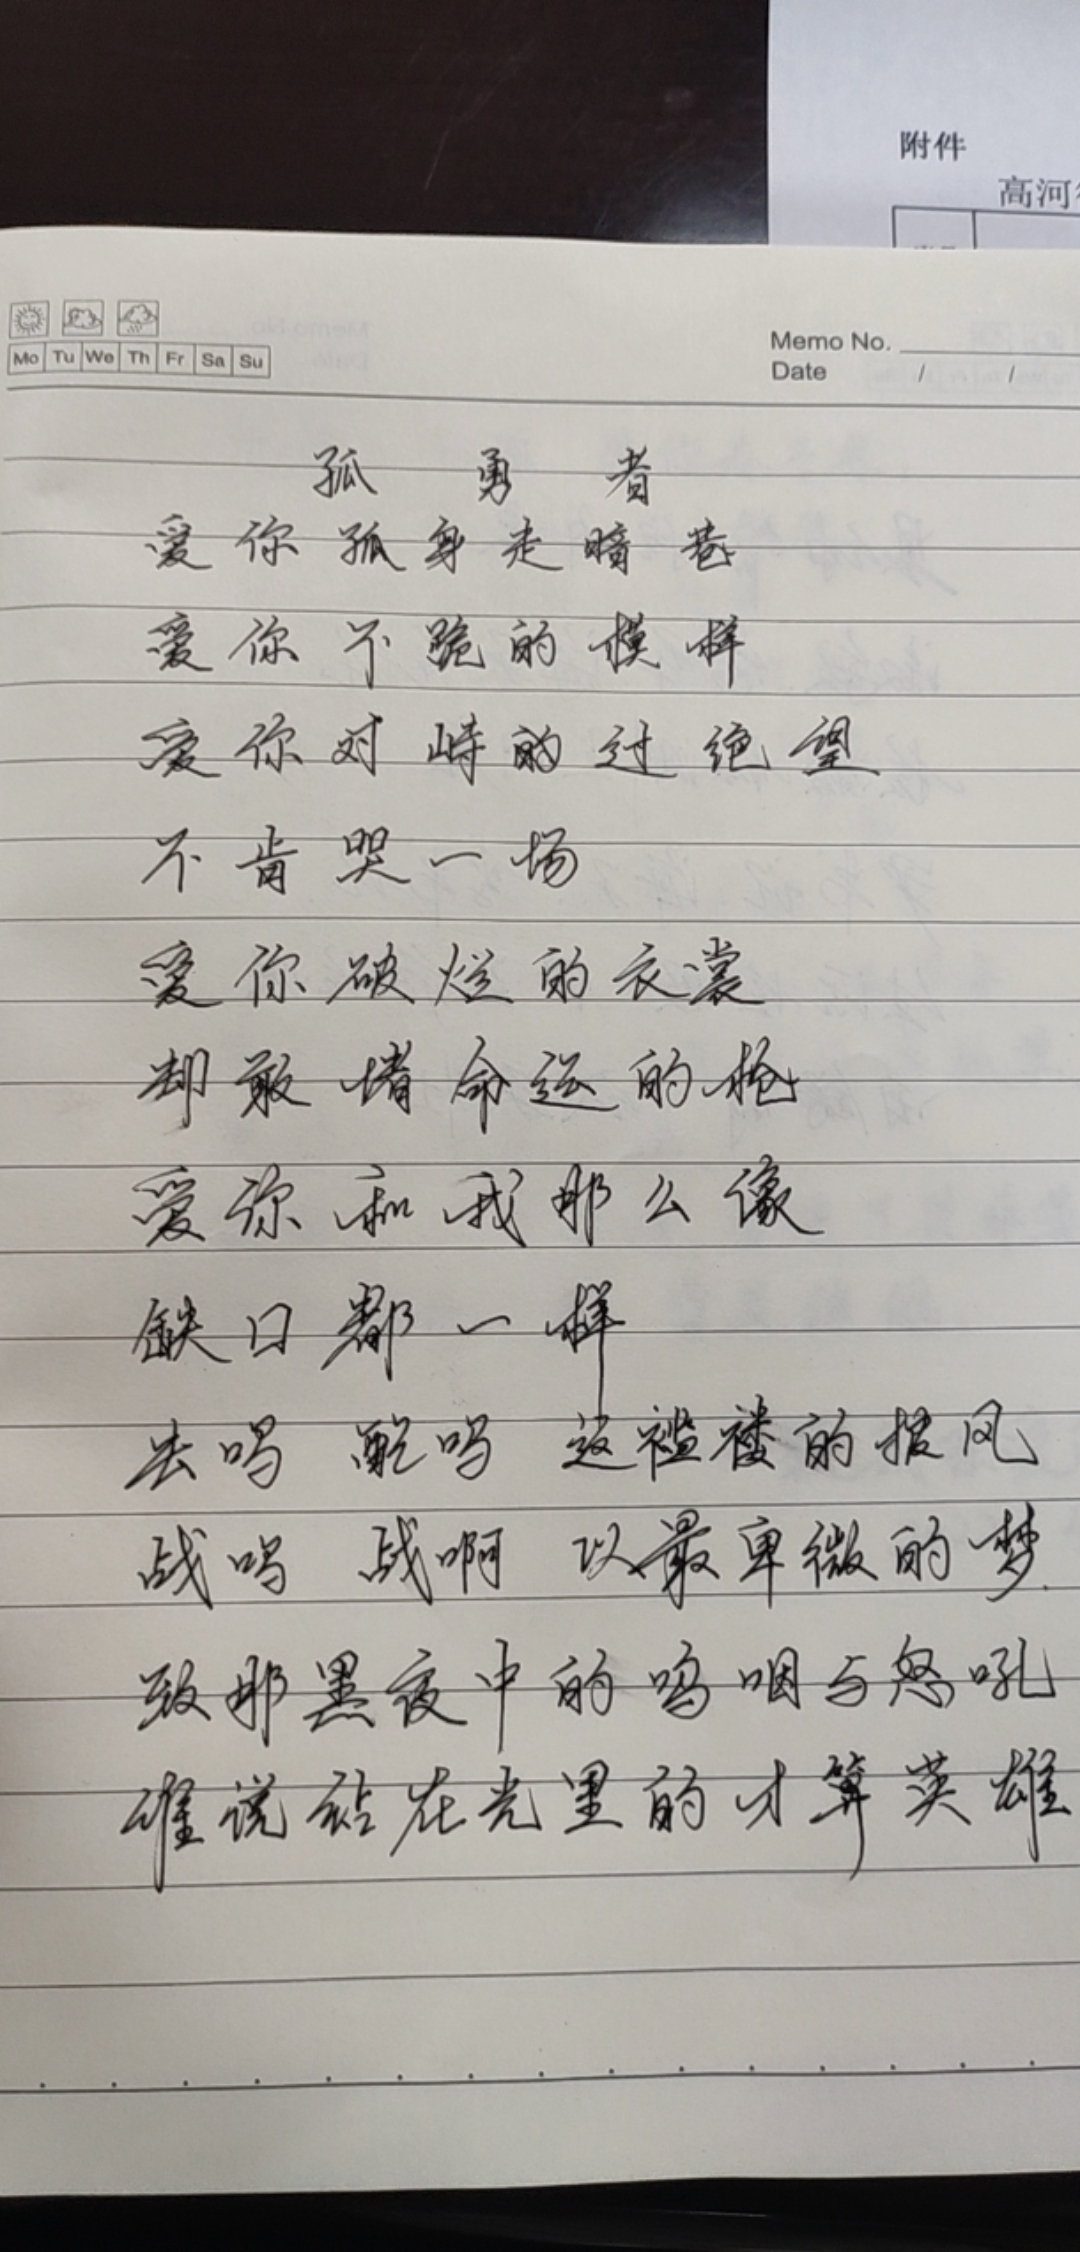 附件
高河
Memo No.
Mo Tu We Th Fr Sa Su
Date / /
孤 勇 者
爱你孤身走暗巷
爱你不跪的模样
爱你对峙的过绝望
不肯哭一场
爱你破烂的衣裳
却敢堵命运的枪
爱你和我那么像
缺口都一样
去吗 配吗 这褴褛的披风
战吗 战啊 以最卑微的梦
致那黑夜中的呜咽与怒吼
谁说站在光里的才算英雄